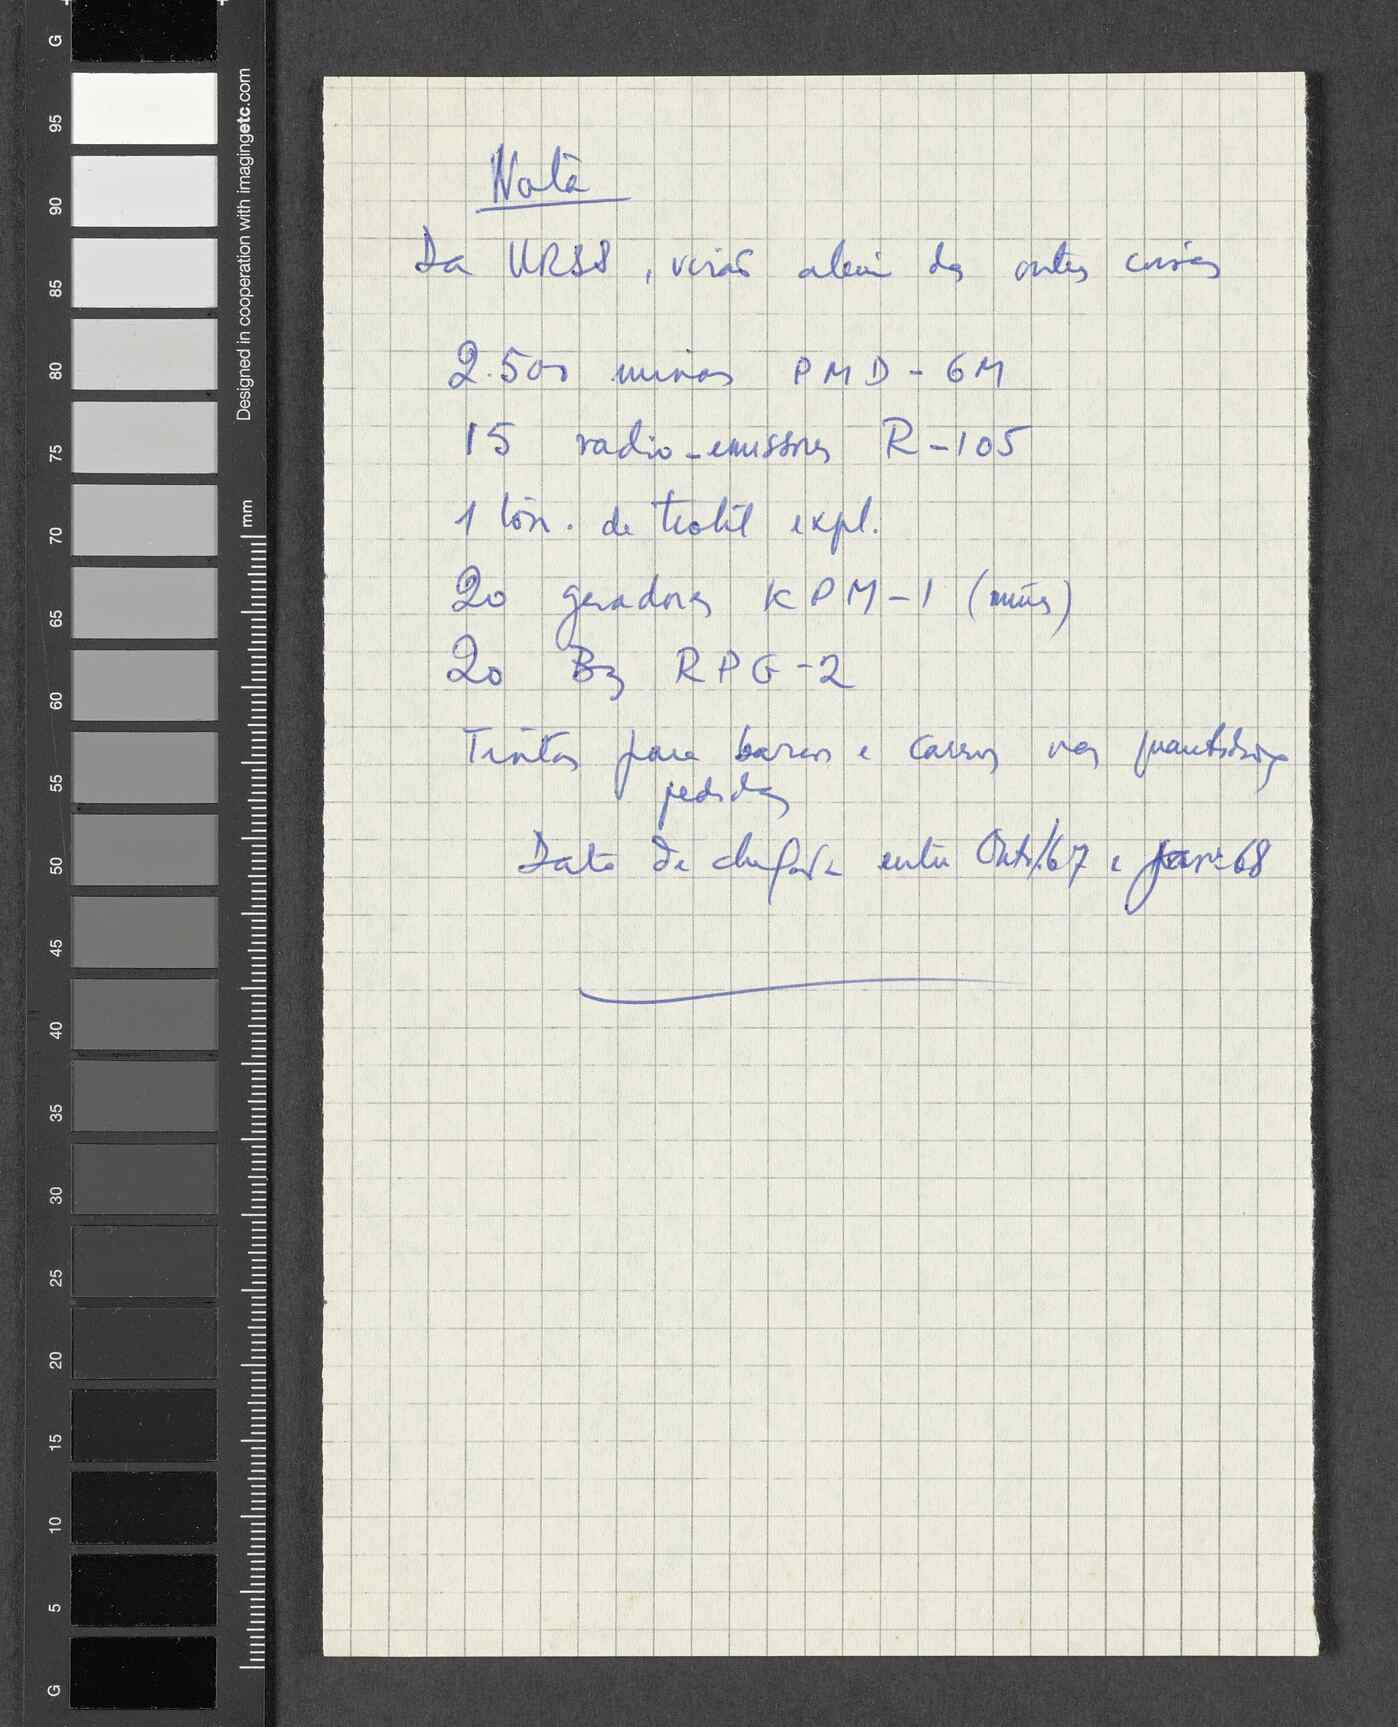 Nota
Da URSS, virão além das outras coisas
2.500 minas PMD-6M
15 radio-emissores R-105
1 ton. de trotil expl.
20 geradores KPM-1 (minas)
20 Bz RPG-2
Tintas para barcos e carros nas quantidades
pedidas
Data de chegada entre Out./67 e Jan. 68
G
95
90
85
80
75
70
65
60
55
50
45
40
35
30
25
20
15
10
5
G
Designed in cooperation with imagingetc.com
mm